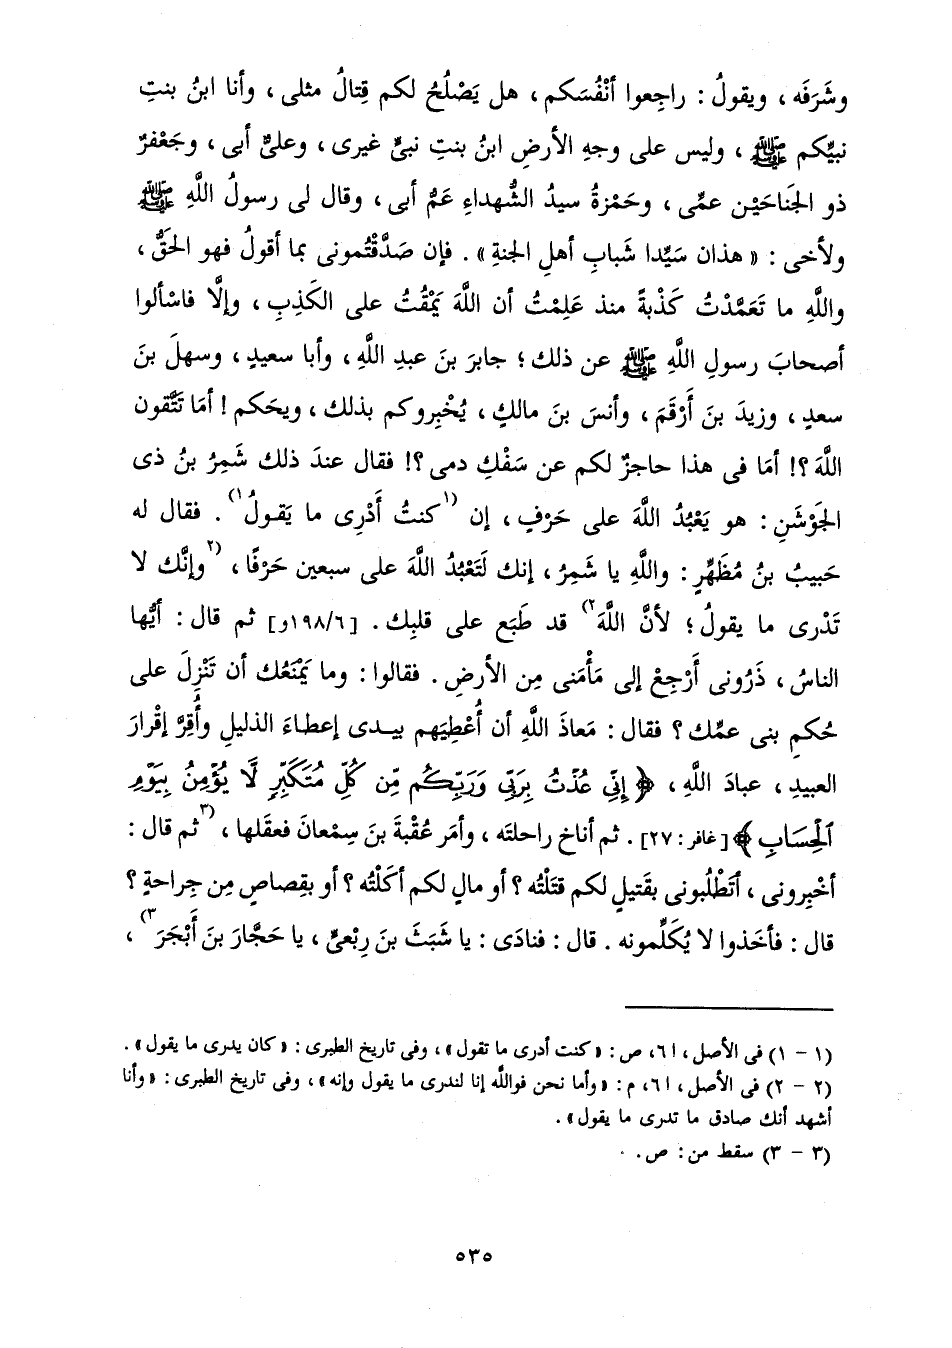 وشَرَفَه ، ويقولُ : راجِعوا أنْفُسَكم ، هل يَصْلُحُ لكم قِتالُ مثلى ، وأنا ابنُ بنتِ
نبيِّكم ﷺ ، وليس على وجهِ الأرضِ ابنُ بنتِ نبيٍّ غيرى ، وعليٌّ أبى ، وجَعْفرٌ
ذو الجَناحَيْن عمِّى ، وحَمْزةُ سيدُ الشُّهداءِ عَمُّ أبى ، وقال لى رسولُ اللَّهِ ﷺ
ولأخى : « هذان سَيِّدا شَبابِ أهلِ الجنةِ » . فإن صَدَّقْتُمونى بما أقولُ فهو الحَقُّ ،
واللَّهِ ما تَعَمَّدْتُ كَذْبةً منذ عَلِمْتُ أن اللَّهَ يَمْقُتُ على الكَذِبِ ، وإلَّا فاسْألوا
أصحابَ رسولِ اللَّهِ ﷺ عن ذلك ؛ جابرَ بنَ عبدِ اللَّهِ ، وأبا سعيدٍ ، وسهلَ بنَ
سعدٍ ، وزيدَ بنَ أَرْقَمَ ، وأنسَ بنَ مالكٍ ، يُخْبِروكم بذلك ، ويحَكم ! أمَا تَتَّقون
اللَّهَ ؟! أمَا فى هذا حاجزٌ لكم عن سَفْكِ دمى ؟! فقال عندَ ذلك شَمِرُ بنُ ذى
الجَوْشَنِ : هو يَعْبُدُ اللَّهَ على حَرْفٍ ، إن (١كنتُ أَدْرِى ما يَقولُ١) . فقال له
حَبيبُ بنُ مُظَهِّرٍ : واللَّهِ يا شَمِرُ ، إنك لَتَعْبُدُ اللَّهَ على سبعين حَرْفًا ، (٢وإنَّك لا
تَدْرى ما يقولُ ؛ لأنَّ اللَّهَ٢) قد طَبَع على قلبِك . [١٩٨/٦و] ثم قال : أيُّها
الناسُ ، ذَرُونى أَرْجِعْ إلى مَأْمَنى مِن الأرضِ . فقالوا : وما يَمْنَعُك أن تَنْزِلَ على
حُكمِ بنى عمِّك ؟ فقال : مَعاذَ اللَّهِ أن أُعْطِيَهم بيدى إعطاءَ الذليلِ وأُقِرَّ إقْرارَ
العبيدِ ، عبادَ اللَّهِ ، ﴿ إِنِّي عُذْتُ بِرَبِّي وَرَبِّكُم مِّن كُلِّ مُتَكَبِّرٍ لَّا يُؤْمِنُ بِيَوْمِ
ٱلْحِسَابِ ﴾ [غافر : ٢٧] . ثم أناخ راحلتَه ، وأمَر عُقْبةَ بنَ سِمْعانَ فعقَلها ، (٣ثم قال :
أخْبِرونى ، أتَطْلُبونى بقَتيلٍ لكم قتَلْتُه ؟ أو مالٍ لكم أكَلْتُه ؟ أو بقِصاصٍ مِن جِراحةٍ ؟
قال : فأخَذوا لا يُكَلِّمونه . قال : فنادَى : يا شَبَثَ بنَ رِبْعىٍّ ، يا حَجَّارَ بنَ أَبْجَرَ٣) ،
(١ - ١) فى الأصل ، ٦١، ص : « كنت أدرى ما تقول » ، وفى تاريخ الطبرى : « كان يدرى ما يقول » .
(٢ - ٢) فى الأصل ، ٦١، م : « وأما نحن فواللَّه إنا لندرى ما يقول وإنه » ، وفى تاريخ الطبرى : « وأنا
أشهد أنك صادق ما تدرى ما يقول » .
(٣ - ٣) سقط من : ص .
٥٣٥